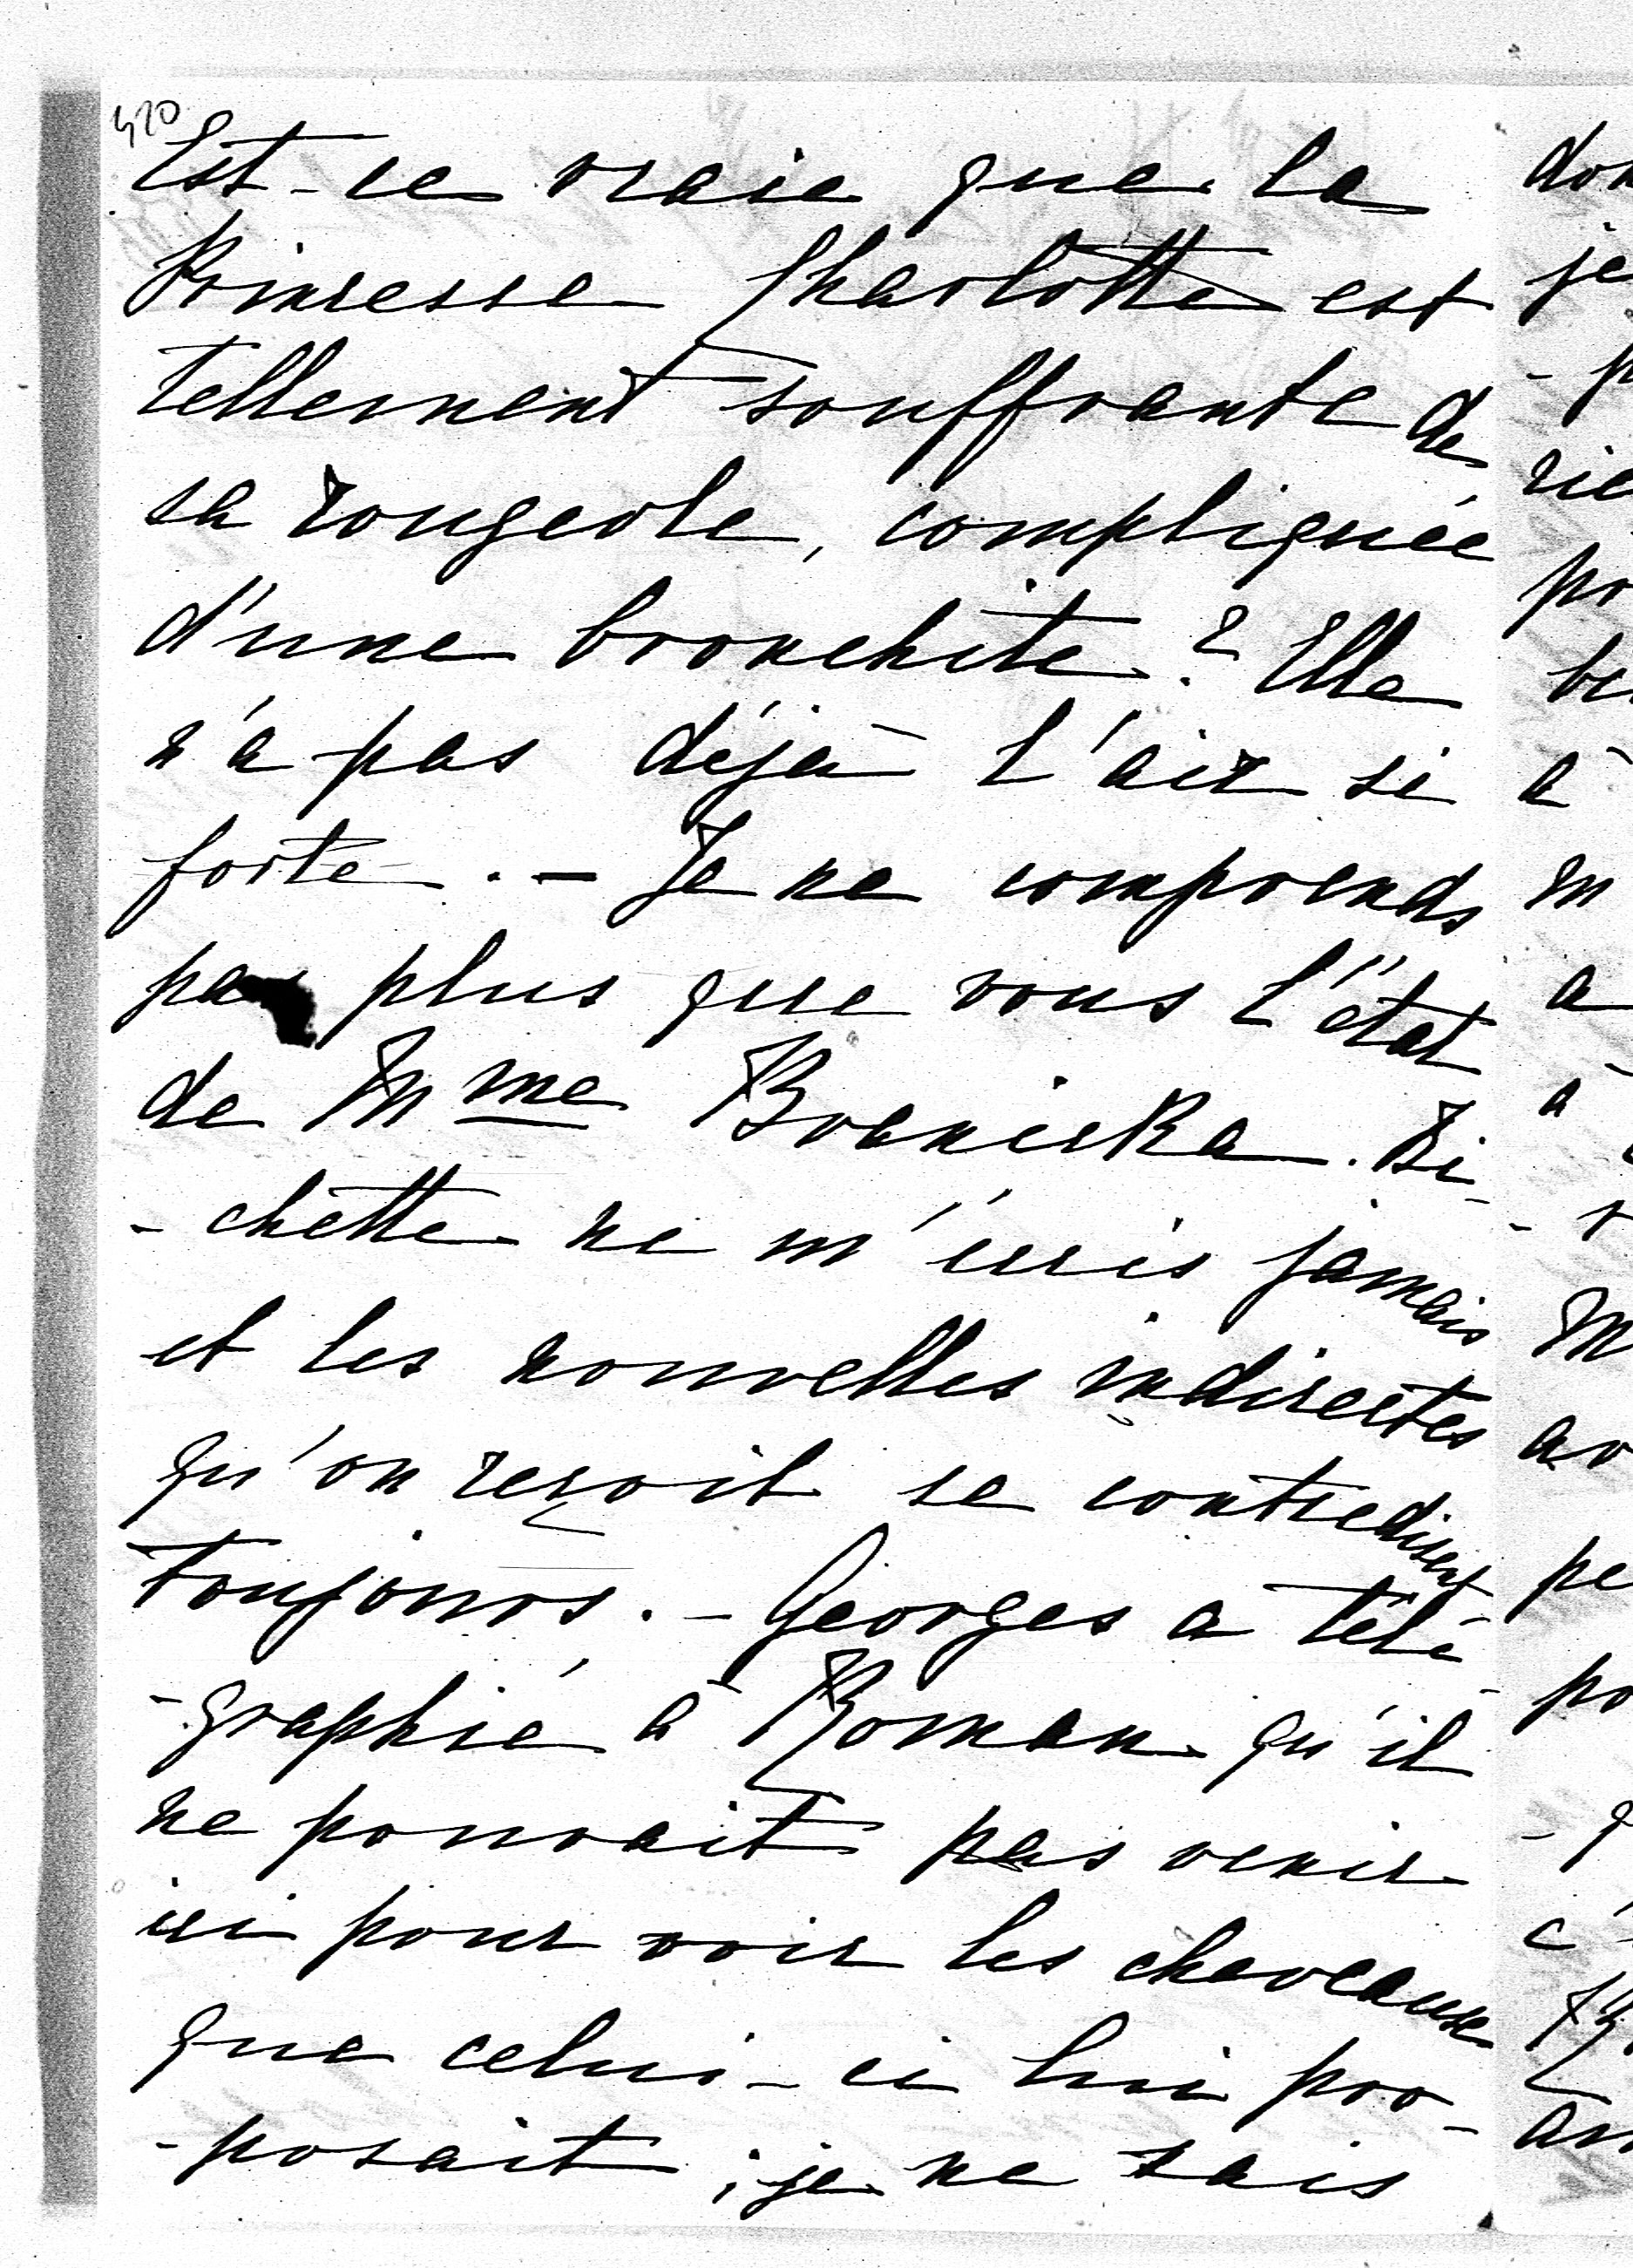 420
Est-ce vraie que la
Princesse Charlotte est
tellement souffrante de
sa rougeole, compliquée
d'une bronchite? Elle
n'a pas déjà l'air si
forte. - Je ne comprends
pas plus que vous l'état
de Mme Branicka. Bi-
-chette ne m'écris jamais
et les nouvelles indirectes
qu'on reçoit se contredisent
toujours. - Georges a télé-
-graphié à Roman qu'il
ne pouvait pas venir
ici pour voir les cheveaux
que celui-ci lui pro-
-posait; je ne sais